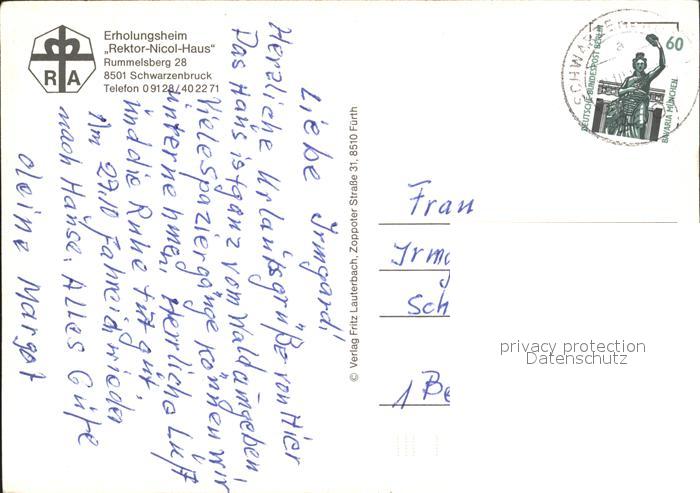 Erholungsheim
„Rektor-Nicol-Haus"
Rummelsberg 28
8501 Schwarzenbruck
Telefon 0 91 28 / 40 22 71
R A
Liebe Irmgard!
Herzliche Urlaubsgrüße von Hier
Das Haus ist ganz vom Wald umgeben,
Viele spaziergänge können wir
unternehmen, Herrliche Luft
und die Ruhe tut gut.
Am 27.10 fahre ich wieder
nach Hause. Alles Gute
deine Margot
© Verlag Fritz Lauterbach, Zoppoter Straße 31, 8510 Fürth
60
DEUTSCHE BUNDESPOST BERLIN
BAVARIA MÜNCHEN
Frau
Irm
Sch
1 Be
privacy protection
Datenschutz